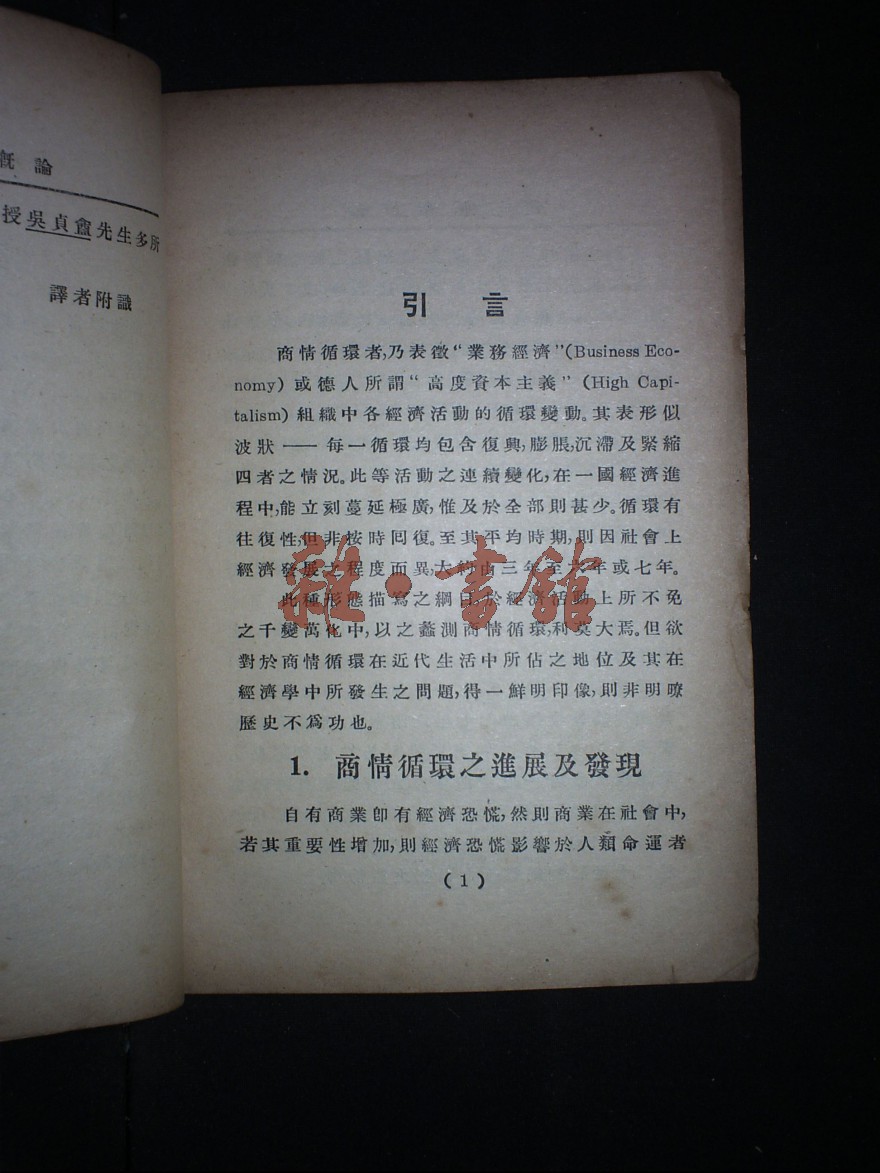 概論
授吳貞盦先生多所
譯者附識
引言
商情循環者,乃表徵“業務經濟”(Business Eco-
nomy)或德人所謂“高度資本主義”(High Capi-
talism)組織中各經濟活動的循環變動。其表形似
波狀——每一循環均包含復興,膨脹,沉滯及緊縮
四者之情況。此等活動之連續變化,在一國經濟進
程中,能立刻蔓延極廣,惟及於全部則甚少。循環有
往復性,但非按時囘復。至其平均時期,則因社會上
經濟發展之程度而異,大約由三年至六年或七年。
此種形態描寫之綱目,於經濟活動上所不免
之千變萬化中,以之蠡測商情循環,利莫大焉。但欲
對於商情循環在近代生活中所佔之地位及其在
經濟學中所發生之問題,得一鮮明印像,則非明暸
歷史不爲功也。
1. 商情循環之進展及發現
自有商業卽有經濟恐慌,然則商業在社會中,
若其重要性增加,則經濟恐慌影響於人類命運者
(1)
雜·書館